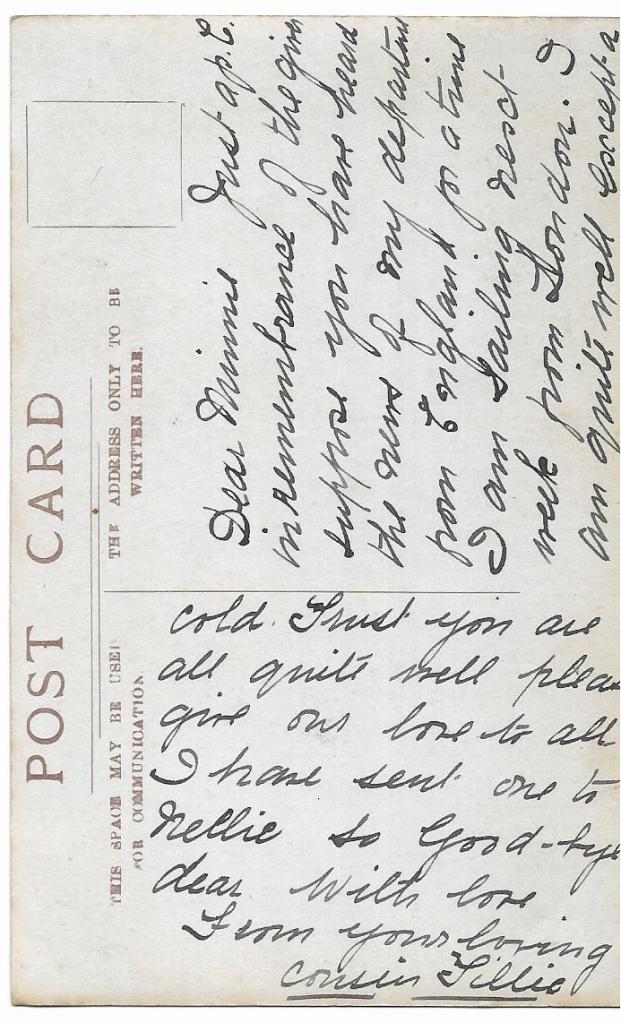 POST CARD
THIS SPACE MAY BE USED
FOR COMMUNICATION.
THE ADDRESS ONLY TO BE
WRITTEN HERE.
Dear Minnie Just a p.c.
in remembrance of the giver
suppose you have heard
the news of my departure
from England for a time
I am sailing next
week from London. I
am quite well except a
cold. Trust you are
all quite well please
give our love to all
I have sent one to
Nellie so Good-bye
dear With love
From your loving
cousin Tillie